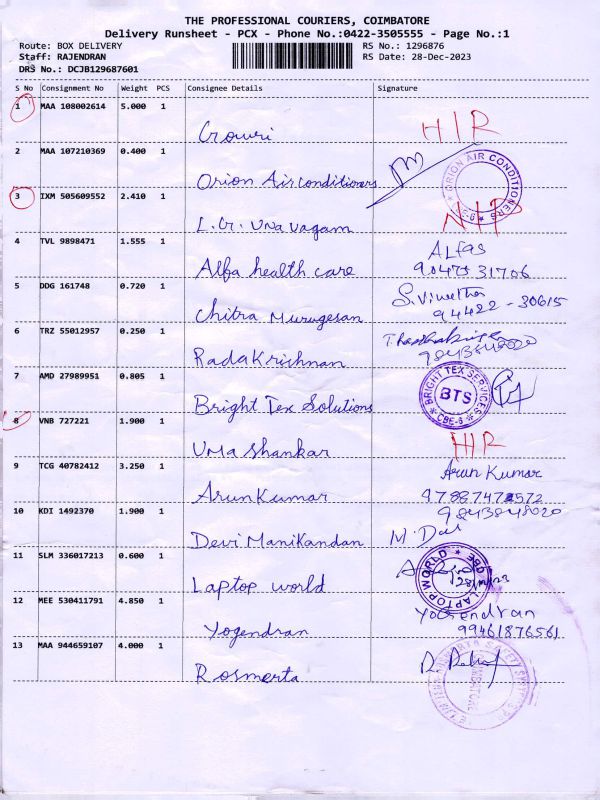 THE PROFESSIONAL COURIERS, COIMBATORE
Delivery Runsheet - PCX - Phone No.:0422-3505555 - Page No.:1
Route: BOX DELIVERY RS No.: 1296876
Staff: RAJENDRAN RS Date: 28-Dec-2023
DRS No.: DCJB129687601
S No Consignment No Weight PCS Consignee Details Signature
1 MAA 108002614 5.000 1
Gowri HIR
2 MAA 107210369 0.400 1
Orion Airconditioners ORION AIR CONDITIONERS
3 IXM 505609552 2.410 1
L.G. Unavagam NIP
4 TVL 9898471 1.555 1
Alfa health care ALFAS
9047531706
5 DDG 161748 0.720 1
Chitra Murugesan S.Vinutha
94422-30615
6 TRZ 55012957 0.250 1
RadaKrishnan 9843848020
7 AMD 27989951 0.805 1
Bright Tex Solutions BRIGHT TEX SERVICES BTS CBE-6
8 VNB 727221 1.900 1
Uma Shankar HIR
9 TCG 40782412 3.250 1
ArunKumar Arun Kumar
10 KDI 1492370 1.900 1 9843848020
Devi Manikandan
11 SLM 336017213 0.600 1
Laptop world LAPTOP WORLD CBE
12 MEE 530411791 4.850 1
Yogendran Yogendran
99461876561
13 MAA 944659107 4.000 1
Rosmerta